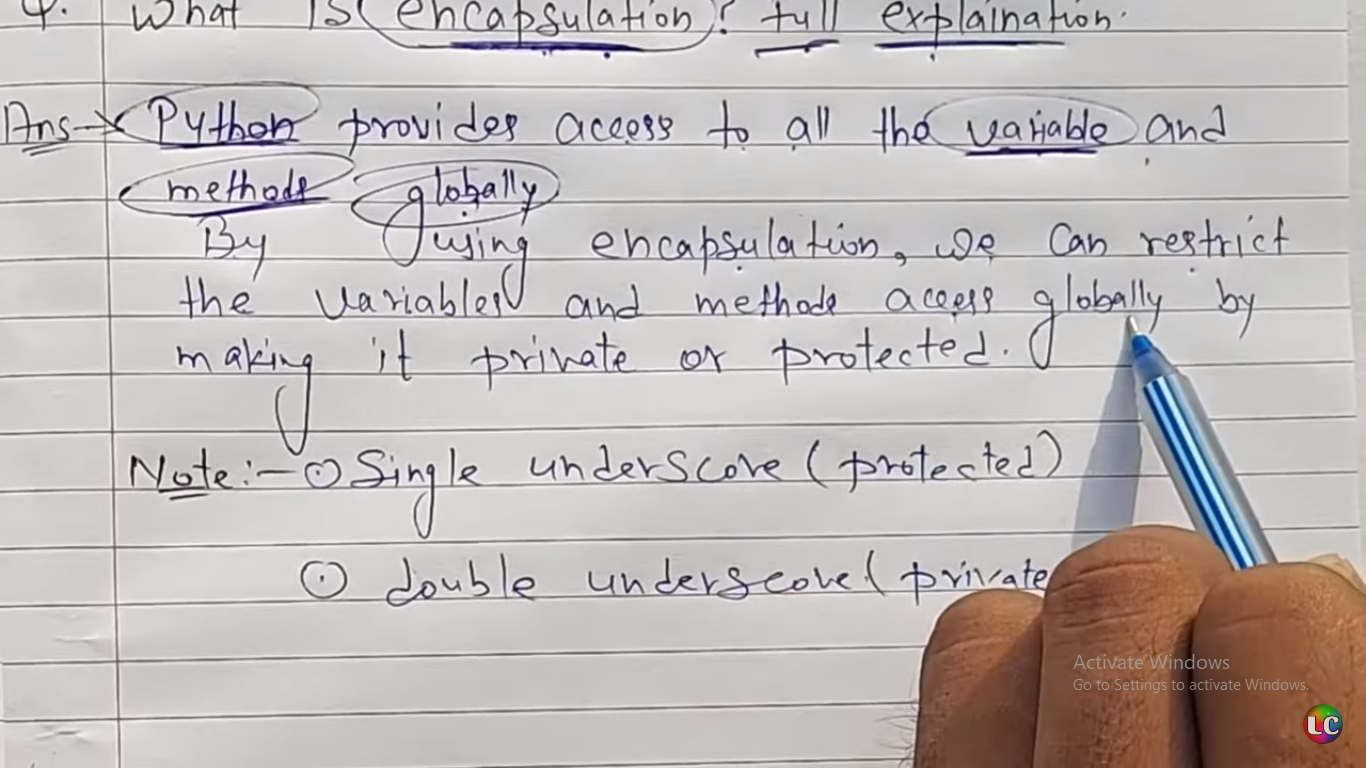 4. What is encapsulation? full explaination.
Ans → Python provides access to all the variable and
methods globally
By using encapsulation, we can restrict
the variables and methods access globally by
making it private or protected.
Note:- ⊙ Single underscore (protected)
⊙ double underscore (private
Activate Windows
Go to Settings to activate Windows.
LC